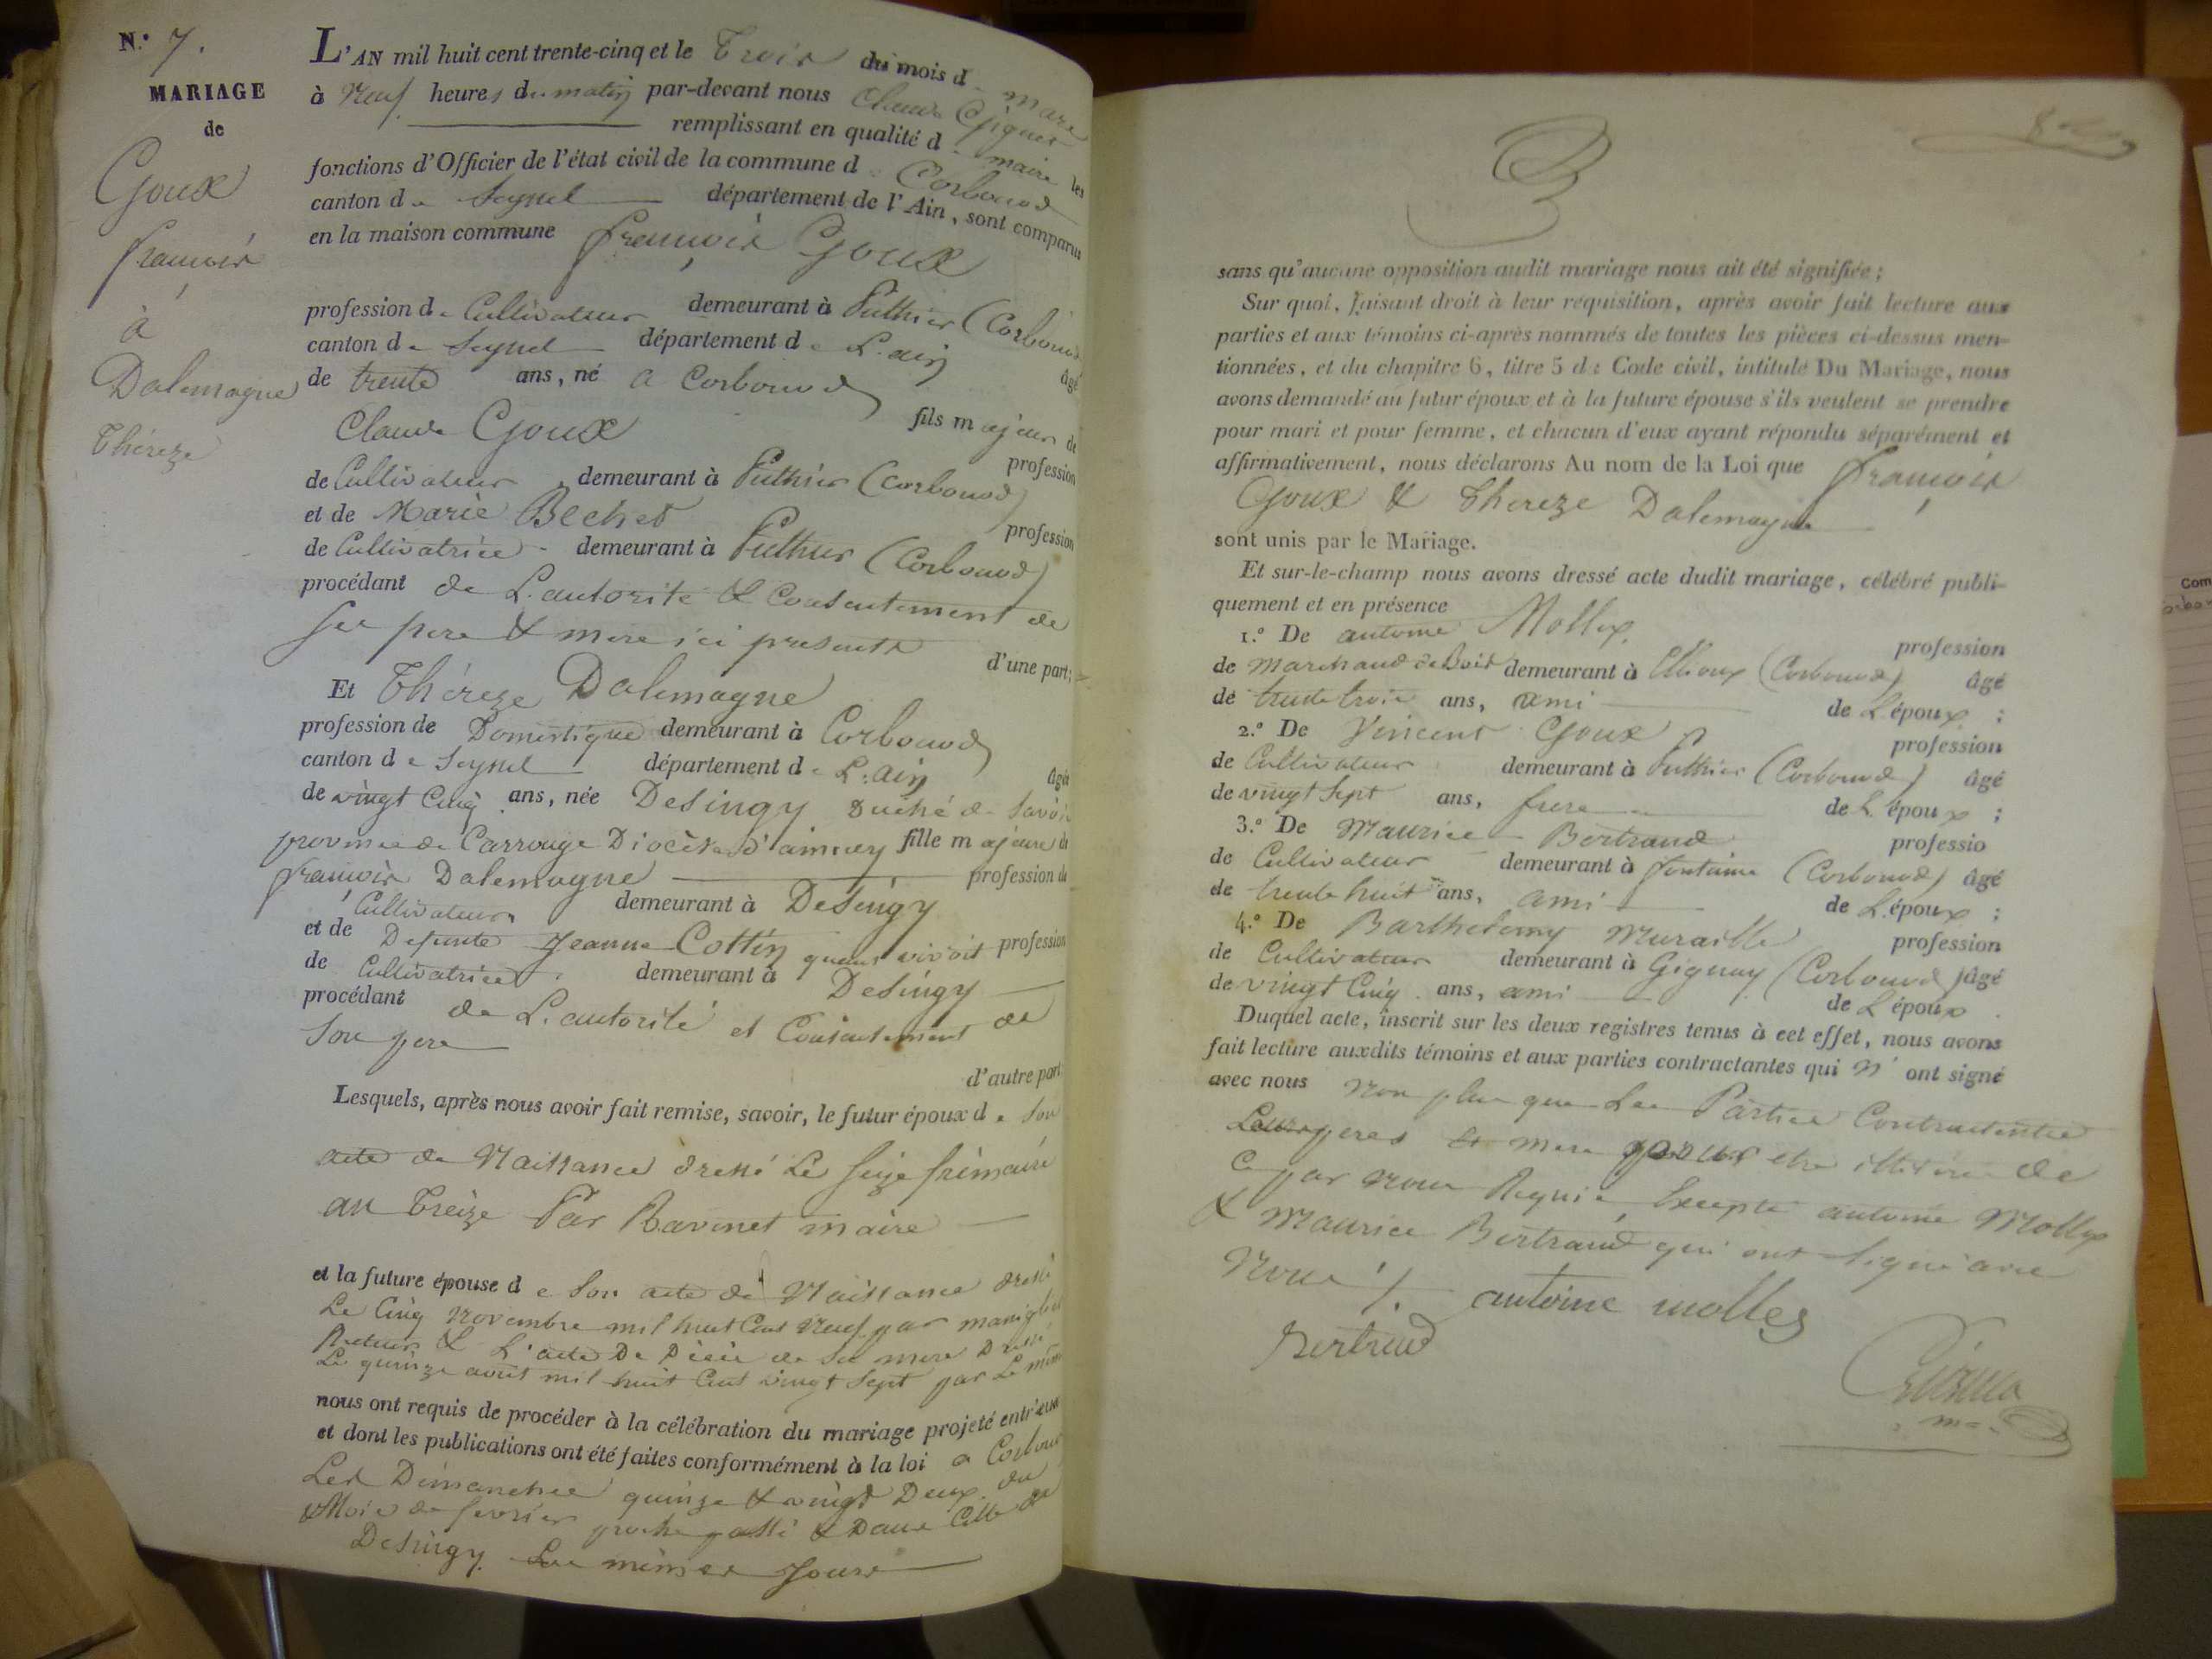 N.° 7.
MARIAGE
de
Goux
françois
à
Dalemagne
Thérèze
L'AN mil huit cent trente-cinq et le Trois du mois de mars
à Neuf heures du matin par-devant nous Claude
remplissant en qualité de maire les
fonctions d'Officier de l'état civil de la commune de Corbonod
canton de Seyssel département de l'Ain, sont comparus
en la maison commune françois Goux
profession de Cultivateur demeurant à Puthier (Corbonod)
canton de Seyssel département de L'ain âgé
de trente ans, né a Corbonod
fils majeur de
Claude Goux profession
de Cultivateur demeurant à Puthier (Corbonod)
et de Marie Bechet profession
de Cultivatrice demeurant à Puthier (Corbonod)
procédant de L'autorité & Consentement de
ses pere & mere ici presents
d'une part;
Et Thérèze Dalemagne
profession de Domestique demeurant à Corbonod
canton de Seyssel département de L'ain âgée
de vingt Cinq ans, née Desingy Duché de Savoie
province de Carrouge Diocèse d'annecy fille majeure de
françois Dalemagne profession de
Cultivateur demeurant à Desingy
et de Defunte Jeanne Cottin quand vivoit profession
de Cultivatrice demeurant à Desingy
procédant de L'autorité et Consentement de
Son pere
d'autre part.
Lesquels, après nous avoir fait remise, savoir, le futur époux de Son
acte de Naissance dressé Le seize frimaire
an treize Par Ravinet maire
et la future épouse de Son acte de Naissance dressé
Le Cinq Novembre mil huit Cent Neuf par
Recteur & L'acte De Décès de sa mere Dressé
Le quinze aout mil huit Cent vingt Sept par Le même
nous ont requis de procéder à la célébration du mariage projeté entr'eux
et dont les publications ont été faites conformément à la loi a Corbonod
Les Dimanches quinze & vingt Deux du
Mois de fevrier proche passé & Dans Celle de
Desingy Les mêmes Jours
sans qu'aucune opposition audit mariage nous ait été signifiée;
Sur quoi, faisant droit à leur réquisition, après avoir fait lecture aux
parties et aux témoins ci-après nommés de toutes les pièces ci-dessus men-
tionnées, et du chapitre 6, titre 5 du Code civil, intitulé Du Mariage, nous
avons demandé au futur époux et à la future épouse s'ils veulent se prendre
pour mari et pour femme, et chacun d'eux ayant répondu séparément et
affirmativement, nous déclarons Au nom de la Loi que françois
Goux & Thereze Dalemagne
sont unis par le Mariage.
Et sur-le-champ nous avons dressé acte dudit mariage, célébré publi-
quement et en présence
1.° De antoine Mollex profession
de Marchand de Bois demeurant à (Corbonod) âgé
de trente trois ans, ami de L'époux ;
2.° De Vincent Goux profession
de Cultivateur demeurant à Puthier (Corbonod) âgé
de vingt Sept ans, frere de L'époux ;
3.° De Maurice Bertrand professio
de Cultivateur demeurant à fontaine (Corbonod) âgé
de trente huit ans, ami de L'époux ;
4.° De Barthelemy Muraille profession
de Cultivateur demeurant à Gignay (Corbonod) âgé
de vingt Cinq ans, ami de L'époux .
Duquel acte, inscrit sur les deux registres tenus à cet effet, nous avons
fait lecture auxdits témoins et aux parties contractantes qui N' ont signé
avec nous Non plus que Les Parties Contractantes
Leurs peres & mere pour etre illitérés de
ce par Nous Requis, Excepté antoine Mollex
& Maurice Bertrand qui ont Signé avec
Nous ./.
antoine mollex
Bertrand